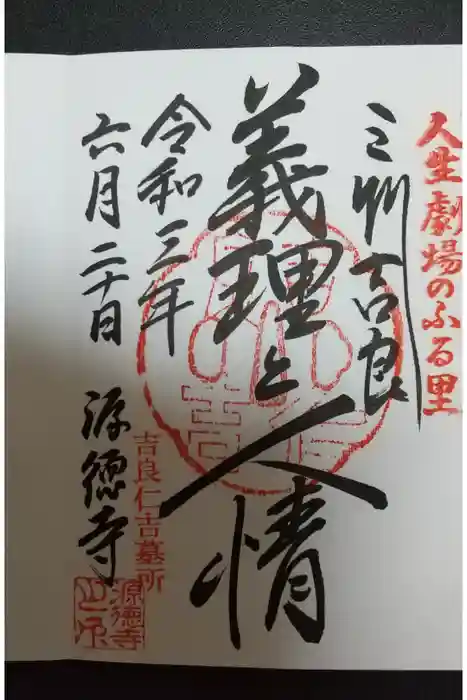 人生劇場のふる里
三州吉良
義理と人情
令和三年
六月二十日
源徳寺
吉良仁吉墓所
源徳寺
之印